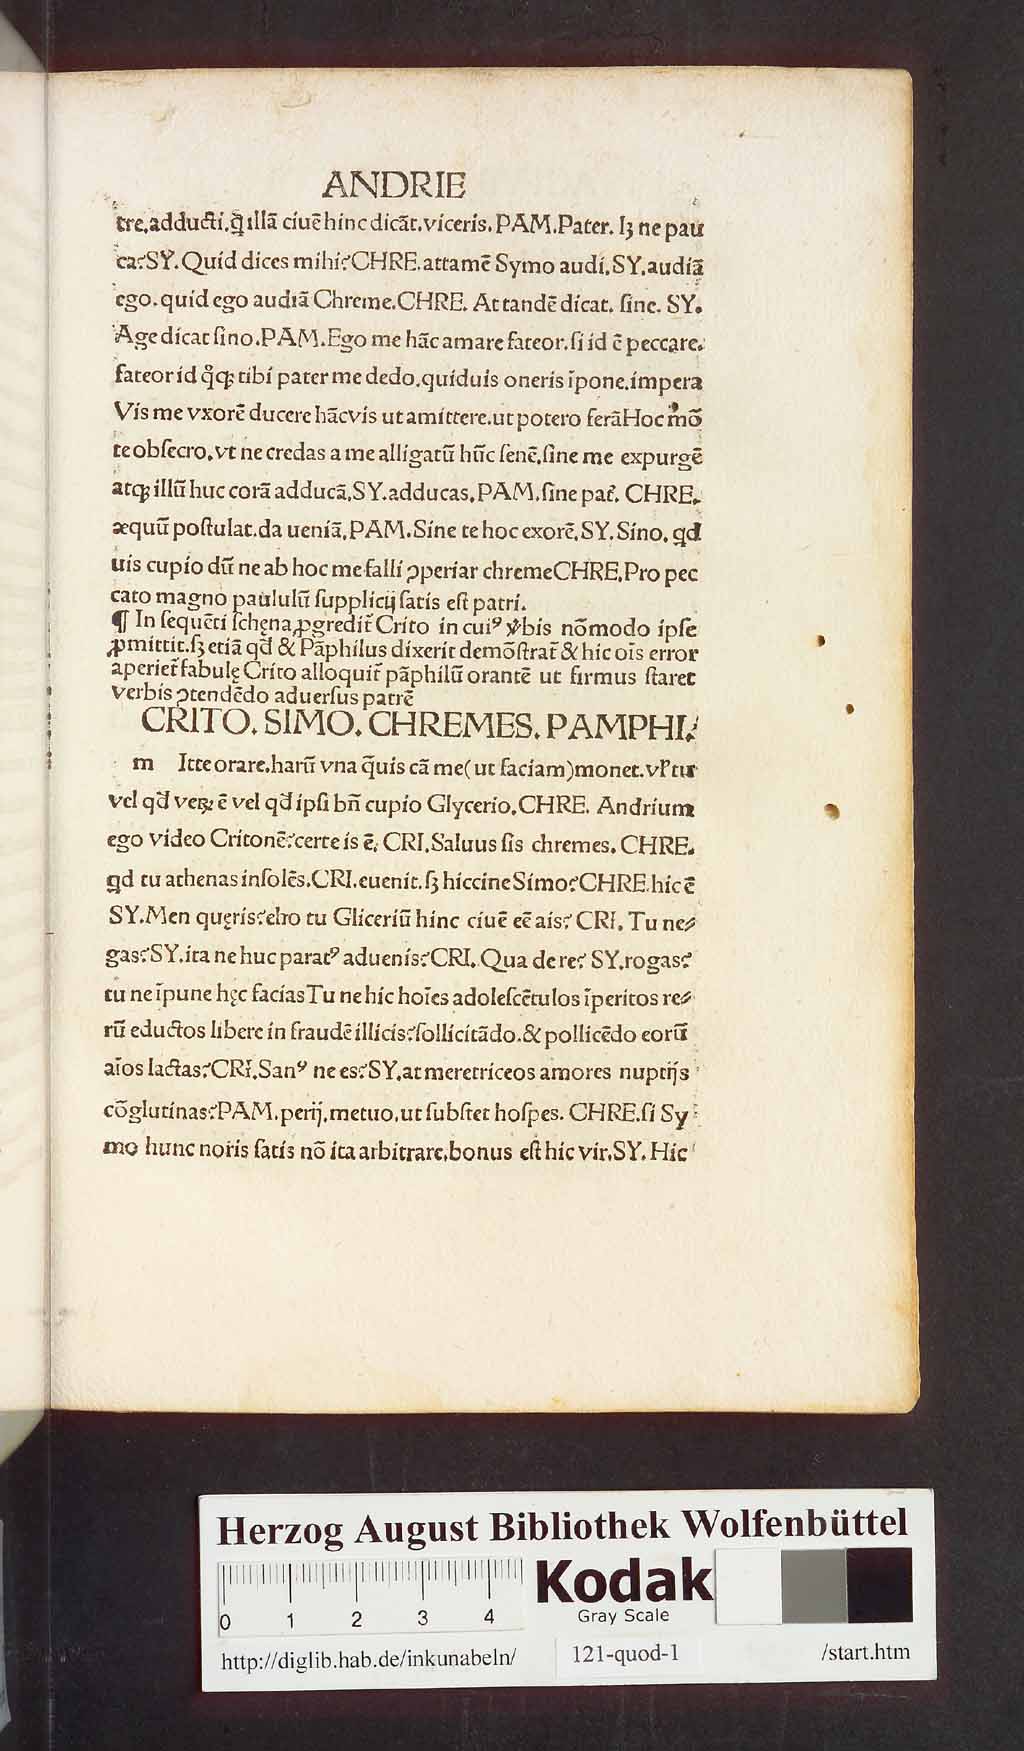 ANDRIE
tre.adducti.q̃ illã ciuẽ hinc dicãt.viceris.PAM.Pater. Iꝫ ne pau
ca?SY.Quid dices mihi?CHRE.attamẽ Symo audi.SY.audiã
ego.quid ego audiã Chreme.CHRE. At tandẽ dicat. ſine. SY.
Age dicat ſino.PAM.Ego me hãc amare fateor.ſi id ẽ peccare.
fateor id q̊qꝫ tibi pater me dedo.quiduis oneris ĩpone.impera
Vis me vxorẽ ducere hãcvis ut amittere.ut potero ferãHoc mõ
te obſecro.vt ne credas a me alligatũ hũc ſenẽ.ſine me expurgẽ
atqꝫ illũ huc corã adducã.SY.adducas.PAM.ſine pat̃. CHRE.
æquũ poſtulat.da ueniã.PAM.Sine te hoc exorẽ.SY.Sino. qd
uis cupio dũ ne ab hoc me falli ꝯperiar chremeCHRE.Pro pec
cato magno paululũ ſupplicij ſatis eſt patri.
¶ In ſequẽti ſchęna ꝓgredit̃ Crito in cuiꝰ v̾bis nõmodo ipſe
ꝓmittit.ſꝫ etiã qd̃ & Pãphilus dixerit demõſtrat̃ & hic oĩs error
aperiet̃ fabulę Crito alloquit̃ pãphilũ orantẽ ut firmus ſtaret
verbis ꝯtendẽdo aduerſus patrẽ
CRITO. SIMO. CHREMES. PAMPHI.
m Itte orare.harũ vna q̃uis cã me(ut faciam)monet.vl̓ tu
vel qd̃ veꝝ ẽ vel qd̃ ipſi bñ cupio Glycerio.CHRE. Andrium
ego video Critonẽ?certe is ẽ. CRI.Saluus ſis chremes. CHRE.
qd tu athenas inſolẽs.CRI.euenit.ſꝫ hiccine Simo?CHRE.hic ẽ
SY.Men quęris?eho tu Gliceriũ hinc ciuẽ eẽ ais? CRI. Tu ne⸗
gas?SY.ita ne huc paratꝰ aduenis?CRI. Qua de re? SY.rogas?
tu ne ĩpune hęc facias Tu ne hic hoĩes adoleſcẽtulos ĩperitos re⸗
rũ eductos libere in fraudẽ illicis?ſollicitãdo.& pollicẽdo eorũ
aĩos lactas?CRI.Sanꝰ ne es?SY.at meretriceos amores nuptijs
cõglutinas?PAM.perij.metuo.ut ſubſtet hoſpes. CHRE.ſi Sy
mo hunc noris ſatis nõ ita arbitrare.bonus eſt hic vir.SY. Hic
Herzog August Bibliothek Wolfenbüttel
0 1 2 3 4
Kodak
Gray Scale
http://diglib.hab.de/inkunabeln/ 121-quod-1 /start.htm